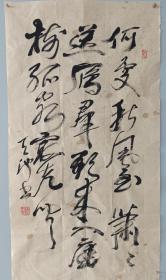 何處秋風至蕭々
送雁群朝來入庭
樹孤客最先聞